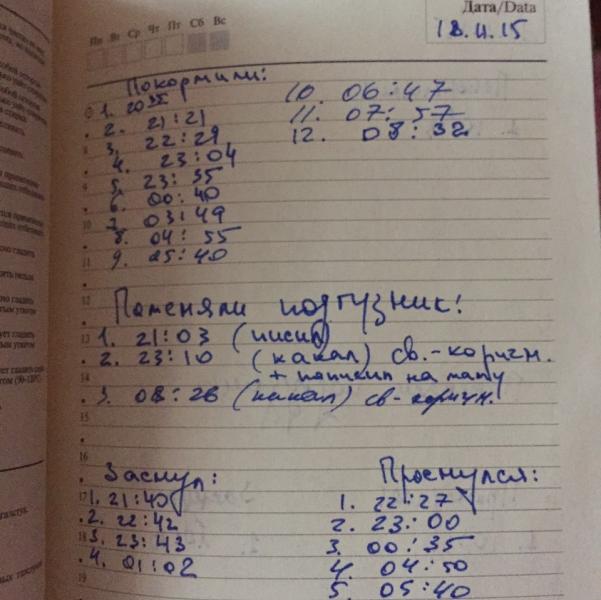 Дата/Data
Пн Вт Ср Чт Пт Сб Вс
18.11.15
Покормили:
1. 20:35
10. 06:47
2. 21:21
11. 07:57
3. 22:29
12. 08:32
4. 23:04
5. 23:35
6. 00:40
7. 03:49
8. 04:55
9. 05:40
Поменяли подгузник:
1. 21:03 (писил)
2. 23:10 (какал) св.-коричн.
+ написил на маму
3. 08:26 (какал) св-коричн.
Заснул:
Проснулся:
1. 21:40
1. 22:27
2. 22:42
2. 23:00
3. 23:43
3. 00:35
4. 01:02
4. 04:50
5. 05:40